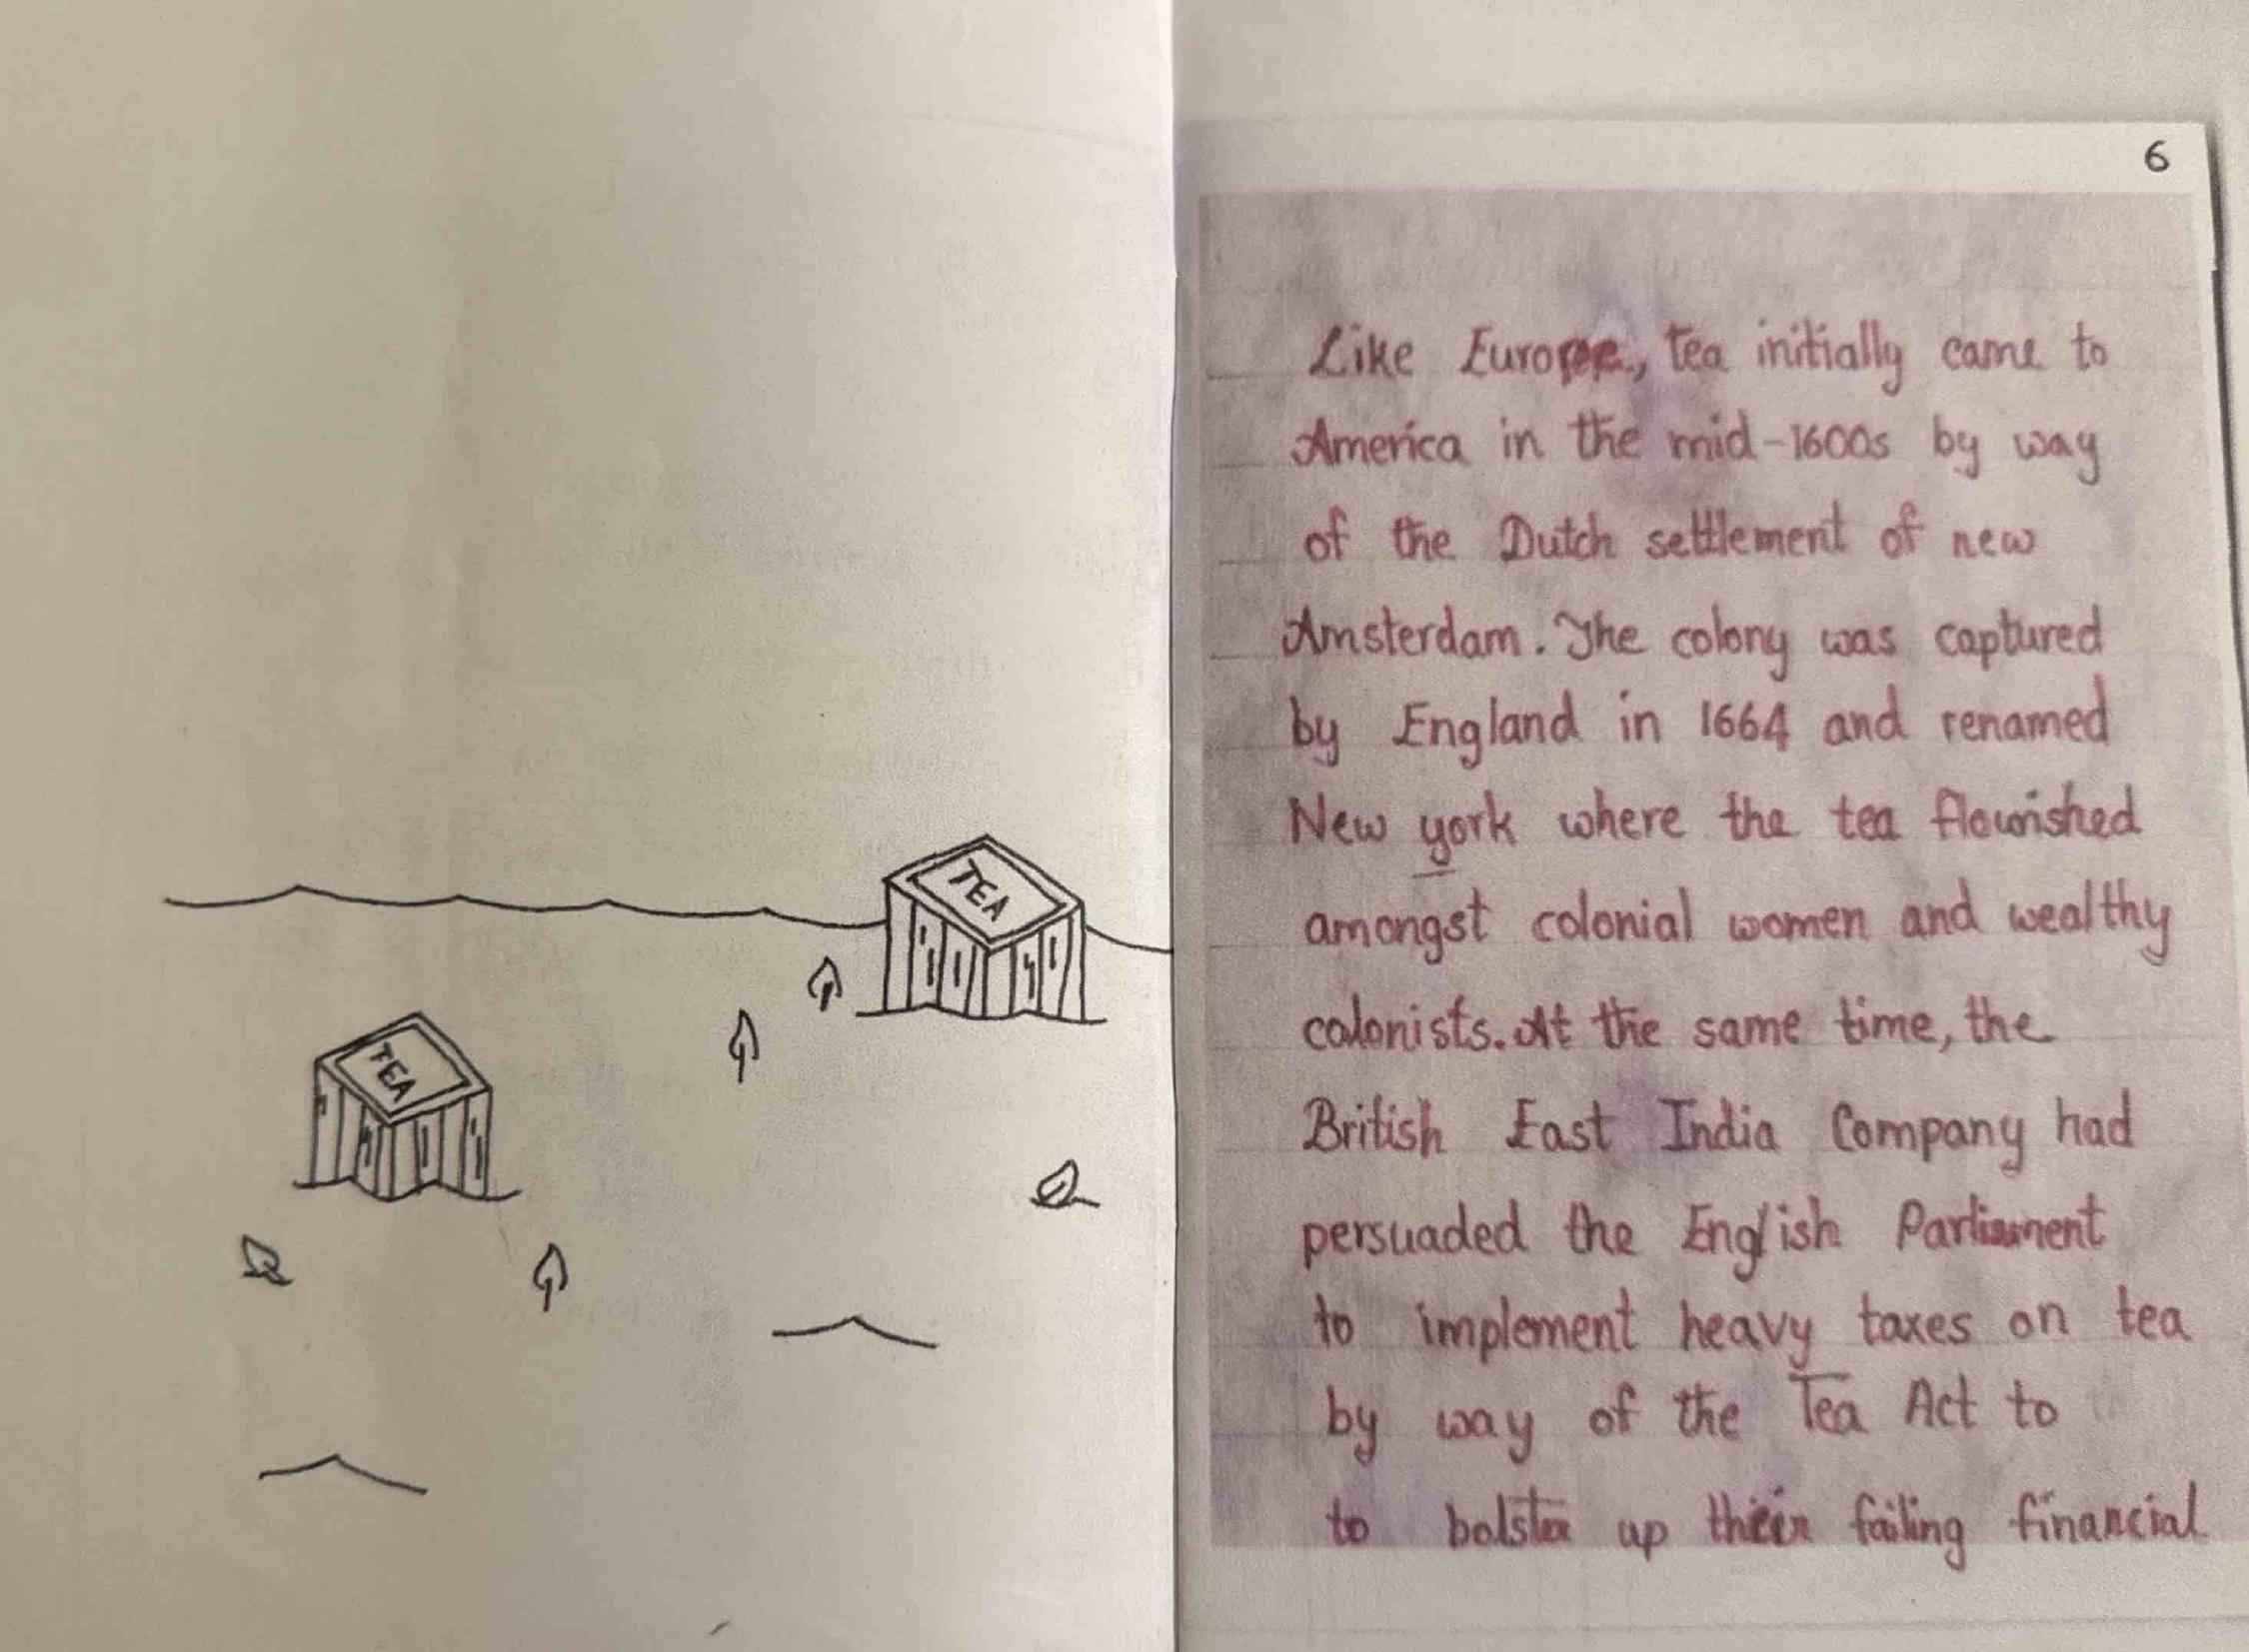 TEA
TEA
6
Like Europe, tea initially came to
America in the mid-1600s by way
of the Dutch settlement of new
Amsterdam. The colony was captured
by England in 1664 and renamed
New york where the tea flourished
amongst colonial women and wealthy
colonists. At the same time, the
British East India Company had
persuaded the English Parliament
to implement heavy taxes on tea
by way of the Tea Act to
to bolster up their failing financial